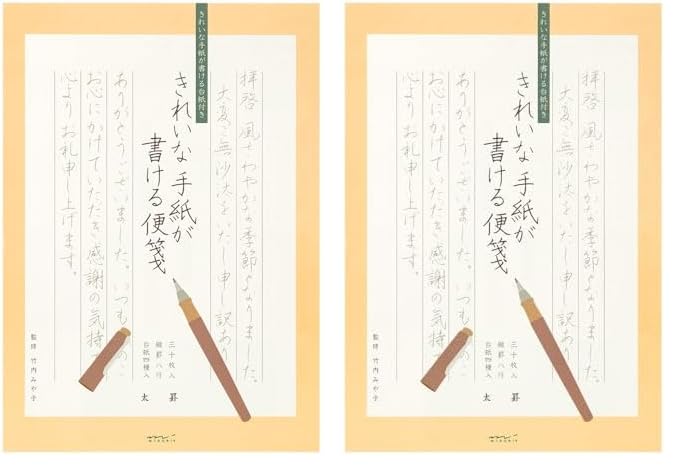 きれいな手紙が書ける台紙付き
拝啓 風さわやかな季節となりました。
大変ご無沙汰をいたし申し訳あり
きれいな手紙が
書ける便箋
ありがとうございました。いつもの
お心にかけていただき感謝の気持
心よりお礼申し上げます。
三十枚入
縦罫八行
台紙四種入
太 罫
監修 竹内みや子
MIDORI
きれいな手紙が書ける台紙付き
拝啓 風さわやかな季節となりました。
大変ご無沙汰をいたし申し訳あり
きれいな手紙が
書ける便箋
ありがとうございました。いつもの
お心にかけていただき感謝の気持
心よりお礼申し上げます。
三十枚入
縦罫八行
台紙四種入
太 罫
監修 竹内みや子
MIDORI